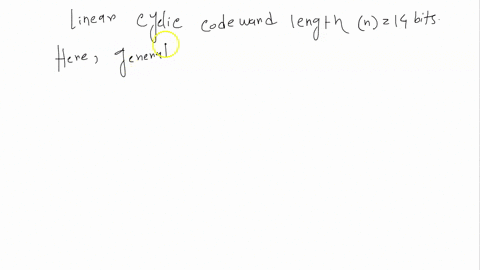 Linear cyclic codeward length (n) = 14 bits.
Here, general